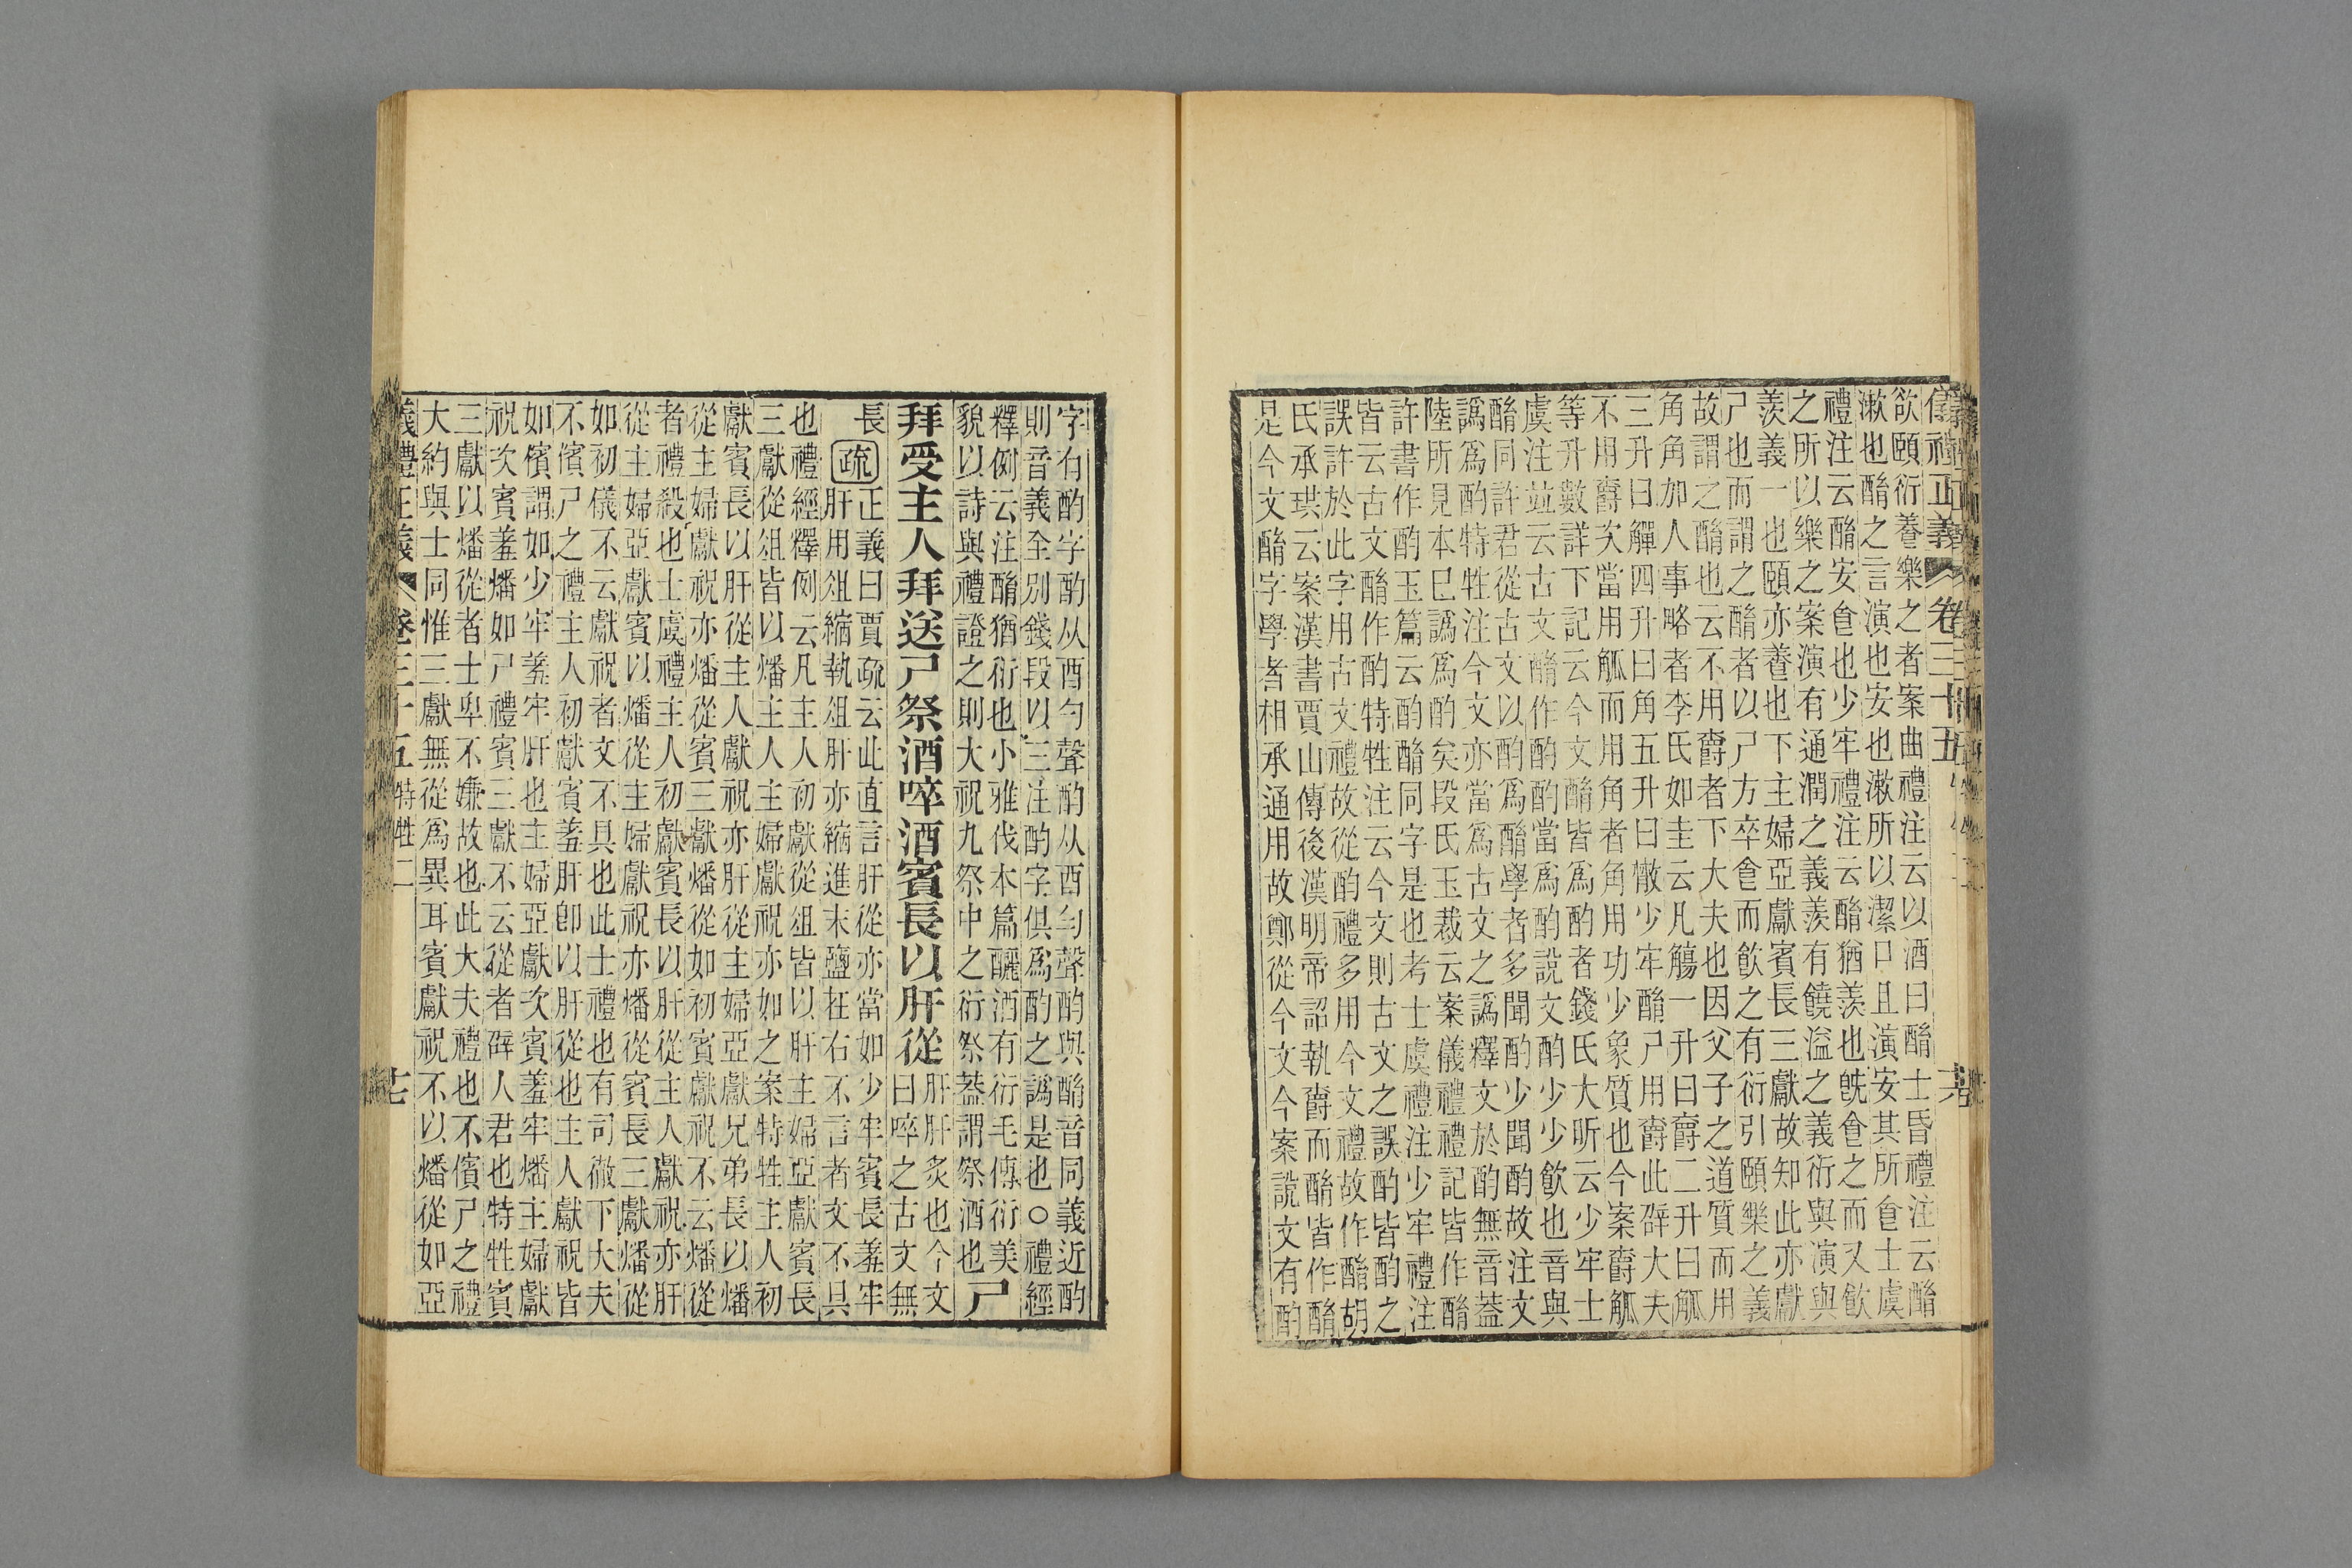 儀禮正義 卷三十五
欲頤衍養樂之者案曲禮注云以酒曰酳士昏禮注云酳
漱也酳之言演也安也漱所以潔口且演安其所食士虞
禮注云酳安食也少牢禮注云酳猶羨也旣食之而又飲
之所以樂之案演有通潤之義羨有饒溢之義衍與演與
羨義一也頤亦養也下主婦亞獻賓長三獻故知此亦獻
尸也而謂之酳者以尸方卒食而飲之有衍引頤樂之義
故謂之酳也云不用爵者下大夫也因父子之道質而用
角角加人事略者李氏如圭云凡觴一升曰爵二升曰觚
三升曰觶四升曰角五升曰散少牢酳尸用爵此辟大夫
不用爵次當用觚而用角者角用功少象質也今案爵觚
等升數詳下記云今文酳皆爲酌者錢氏大昕云少牢士
虞注竝云古文酳作酌酌當爲酌說文酌少少飲也音與
酳同許君從古文以酌爲酳學者多聞酌少聞酌故注文
譌爲酌特牲注今文亦當爲古文之譌釋文於酌無音蓋
陸所見本已譌爲酌矣段氏玉裁云案儀禮禮記皆作酳
許書作酌玉篇云酌酳同字是也考士虞禮注少牢禮注
皆云古文酳作酌特牲注云今文則古文之誤酌皆酌之
誤許於此字用古文禮故從酌禮多用今文禮故作酳胡
氏承珙云案漢書賈山傳後漢明帝詔執爵而酳皆作酳
是今文酳字學者相承通用故鄭從今文今案說文有酌
字有酌字酌从酉勺聲酌从酉勻聲酌與酳音同義近酌
則音義全別錢段以三注酌字俱爲酌之譌是也○禮經
釋例云注酳猶衍也小雅伐木篇釃酒有衍毛傳衍美
貌以詩與禮證之則大祝九祭中之衍祭蓋謂祭酒也尸
拜受主人拜送尸祭酒啐酒賓長以肝從肝肝炙也今文
曰啐之古文無
長疏正義曰賈疏云此直言肝從亦當如少牢賓長羞牢
肝用俎縮執俎肝亦縮進末鹽在右不言者文不具
也禮經釋例云凡主人初獻從俎皆以肝主婦亞獻賓長
三獻從俎皆以燔主人主婦獻祝亦如之案特牲主人初
獻賓長以肝從主人獻祝亦肝從主婦亞獻兄弟長以燔
從主婦獻祝亦燔從賓三獻燔從如初賓獻祝不云燔從
者禮殺也士虞禮主人初獻賓長以肝從主人獻祝亦肝
從主婦亞獻賓以燔從主婦獻祝亦燔從賓長三獻燔從
如初儀不云獻祝者文不具也此士禮也有司徹下大夫
不儐尸之禮主人初獻賓羞肝卽以肝從也主人獻祝皆
如儐謂如少牢羞牢肝也主婦亞獻次賓羞牢燔主婦獻
祝次賓羞燔如尸禮賓三獻不云從者辟人君也特牲賓
三獻以燔從者士卑不嫌故也此大夫禮也不儐尸之禮
大約與士同惟三獻無從爲異耳賓獻祝不以燔從如亞
儀禮正義 卷三十五 特牲二